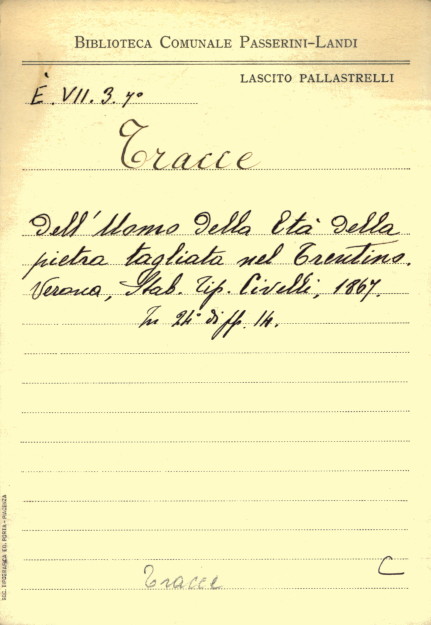 BIBLIOTECA COMUNALE PASSERINI-LANDI
LASCITO PALLASTRELLI
E. VII. 3. 7°
Tracce
dell'Uomo della Età della
pietra tagliata nel Trentino.
Verona, Stab. Tip. Civelli, 1867.
In 24° di pp. 14.
Tracce
C